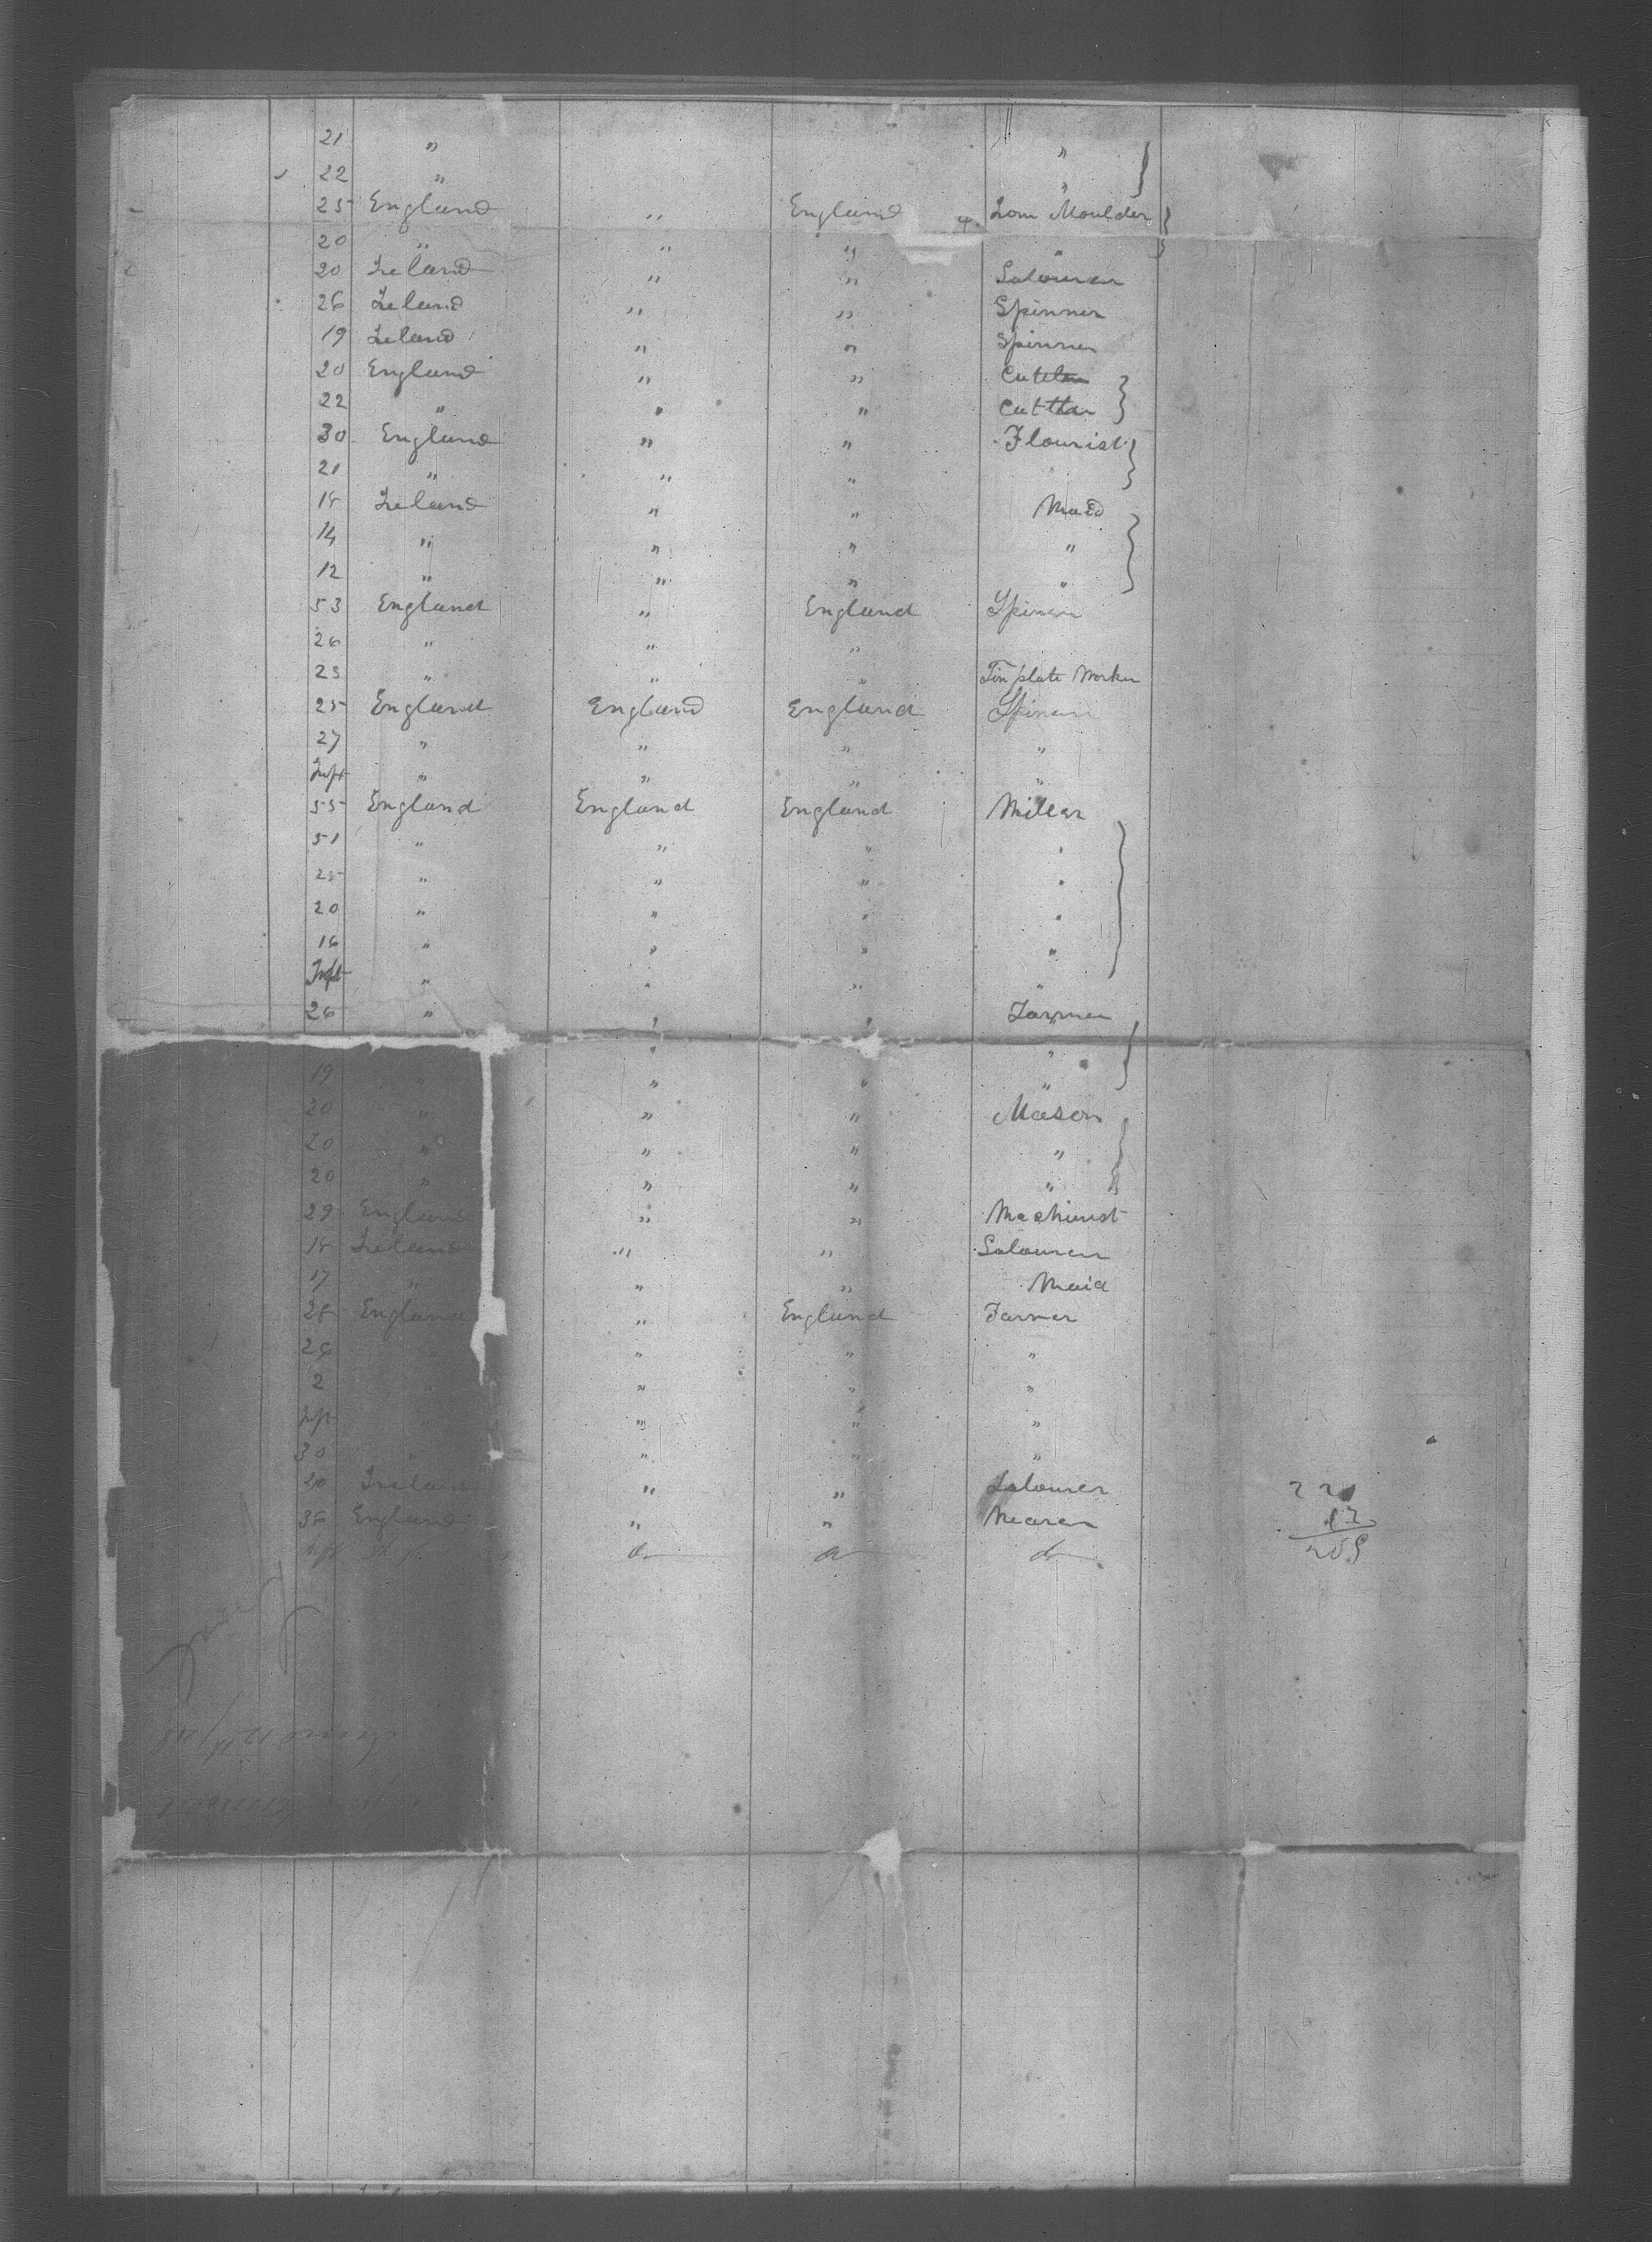 21 " "
22 " "
25 England " England Iron Moulder
20 " " " "
20 Ireland " " Labourer
26 Ireland " " Spinner
19 Ireland " " Spinner
20 England " " Cutler
22 " " " Cuttler
30 England " " Flourist
21 " " "
18 Ireland " " Maid
14 " " " "
12 " " " "
53 England " England Spinner
26 " " "
23 " " " Tin plate Worker
25 England England England Spinner
27 " " " "
Inft " " " "
55 England England England Miller
51 " " " "
25 " " " "
20 " " " "
16 " " " "
Inft " " " "
26 " " " Farmer
" "
19 " " " "
20 " " " Mason
20 " " " "
20 " " " "
29 England " " Machinist
18 Ireland " " Labourer
17 " " " Maid
28 England " England Farmer
24 " " " "
2 " " " "
Inft " " " "
30 " " " "
20 Ireland " " Labourer
36 England " "